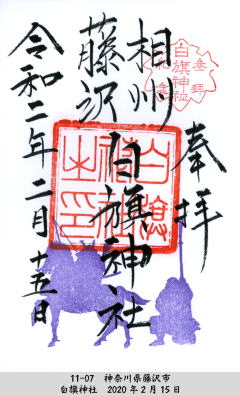 奉拝
相州
藤沢
白旗神社
令和二年二月十五日
白旗神社
参拝
11-07 神奈川県藤沢市
白旗神社 2020年2月15日